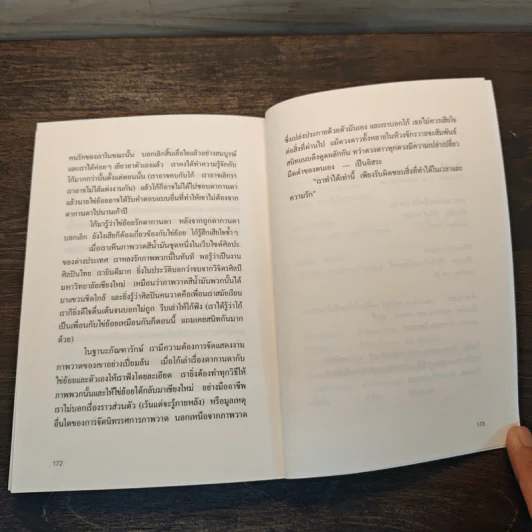 คนรักของเราในขณะนั้น บอกเลิกสิ้นเยื่อใยแล้วอย่างสมบูรณ์
และเราได้ค่อยๆ เยียวยาตัวเองแล้ว เราคงได้ทำความรู้จักกับ
โก้มากกว่านั้นตั้งแต่ตอนนั้น (เราอาจคบกับโก้ เราอาจเลิกรา
เราอาจไม่ได้แต่งงานกัน) แล้วโก้ก็อาจไม่ได้ไปชอบดากานดา
แล้วนายไข่ย้อยอาจได้รับคำตอบแบบอื่นที่ทำให้เขาไม่ห่างจาก
ดากานดาไปนานเก้าปี
โก้มารู้ว่าไข่ย้อยรักดากานดา หลังจากถูกดากานดา
บอกเลิก ยังไงเสียก็ต้องเกี่ยวข้องกับไข่ย้อย โก้รู้สึกเสียใจซ้ำๆ
เมื่อเราเห็นภาพวาดสีน้ำมันชุดหนึ่งในเว็บไซต์ศิลปะ
ของต่างประเทศ เราหลงรักภาพพวกนี้ในทันที พอรู้ว่าเป็นงาน
ศิลปินไทย เรายินดีมาก ยิ่งในประวัติบอกว่าจบจากวิจิตรศิลป์
มหาวิทยาลัยเชียงใหม่ เหมือนว่าภาพวาดสีน้ำมันพวกนั้นได้
มาแขวนชิดใกล้ และยิ่งรู้ว่าศิลปินคนวาดคือเพื่อนเราสมัยเรียน
เราก็ยิ่งดีใจตื่นเต้นจนบอกไม่ถูก รีบเล่าให้โก้ฟัง (เราได้รู้ว่าโก้
เป็นเพื่อนกับไข่ย้อยเหมือนกันก็ตอนนี้ แถมเคยสนิทกันมาก
ด้วย)
ในฐานะภัณฑารักษ์ เรามีความต้องการจัดแสดงงาน
ภาพวาดของเขาอย่างเปี่ยมล้น เมื่อโก้เล่าเรื่องดากานดากับ
ไข่ย้อยและตัวเองให้เราฟังโดยละเอียด เรายิ่งต้องทำทุกวิธีให้
ภาพพวกนั้นและให้ไข่ย้อยได้กลับมาเชียงใหม่ อย่างมืออาชีพ
เราไม่บอกเรื่องราวส่วนตัว (เว้นแต่จะรู้ภายหลัง) หรือมูลเหตุ
อื่นใดของการจัดนิทรรศการภาพวาด นอกเหนือจากภาพวาด
172
ซึ่งเปล่งประกายด้วยตัวมันเอง และเราบอกโก้ เธอไม่ควรเสียใจ
ต่อสิ่งที่ผ่านไป แม้ดวงดาวทั้งหลายในห้วงจักรวาลจะสัมพันธ์
สนิทแนบดึงดูดผลักกัน ทว่าดวงดาวทุกดวงมีความเปล่าเปลี่ยว
มืดดำของตนเอง — เป็นอิสระ
"เราทำได้เท่านี้ เพียงรับผิดชอบสิ่งที่ทำได้ในเวลาและ
ความรัก"
173